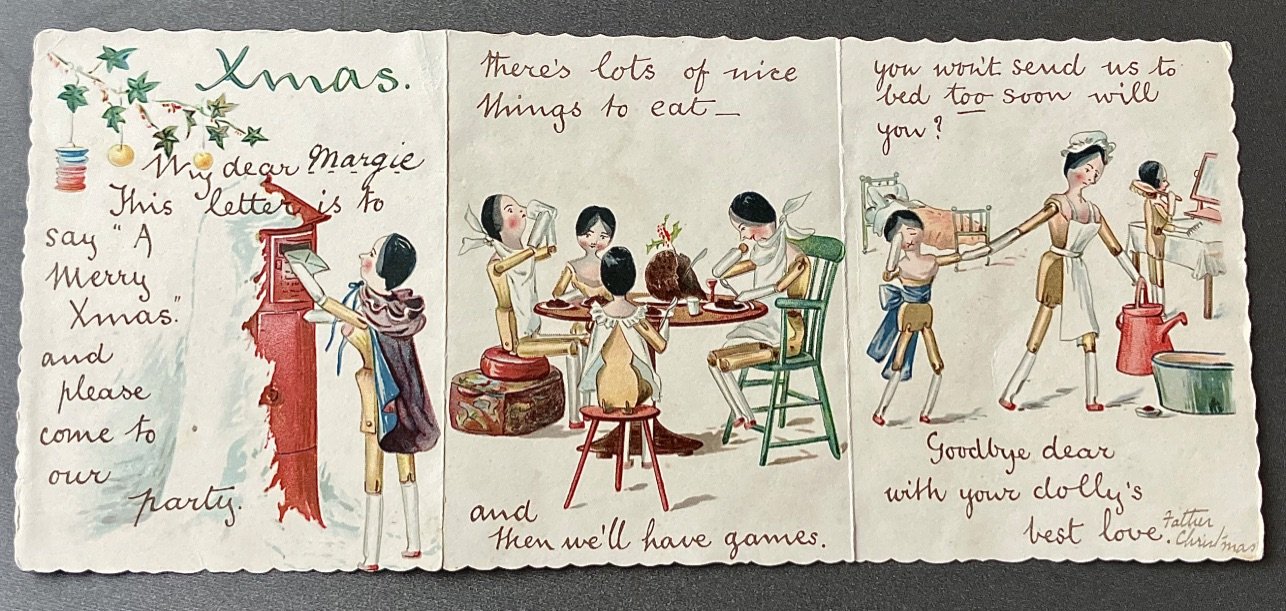 Xmas.
My dear Margie
This letter is to
say "A
Merry
Xmas."
and
please
come to
our
party.
there's lots of nice
things to eat —
and
then we'll have games.
you won't send us to
bed too soon will
you?
Goodbye dear
with your dolly's
best love.
Father
Christmas